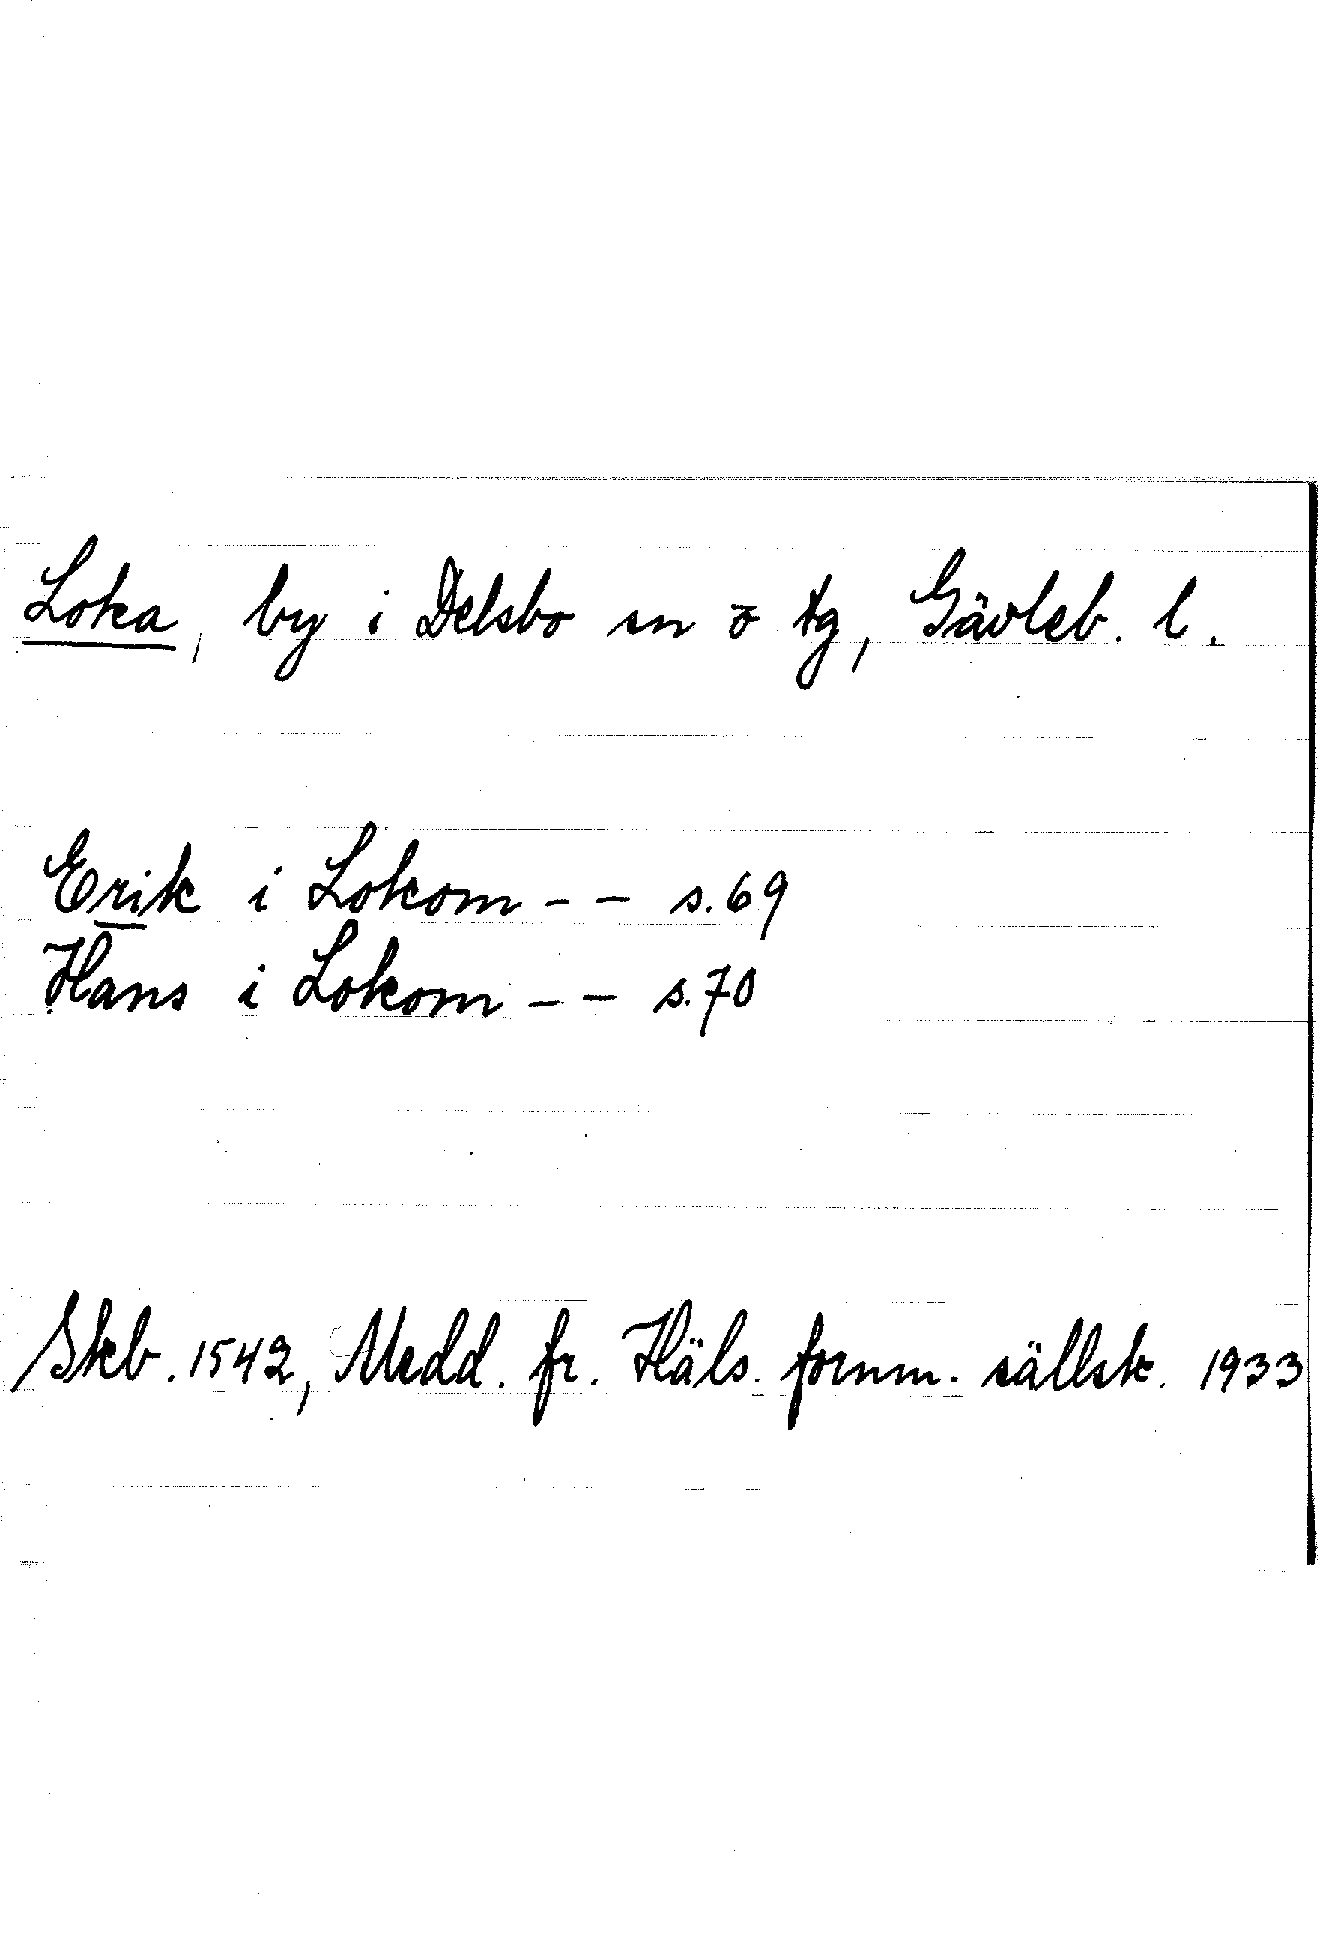 Loka, by i Delsbo sn o tg, Gävleb. l.
Erik i Lokom - - s. 69
Hans i Lokom - - s. 70
Skb. 1542, Medd. fr. Häls. fornm. sällsk. 1933